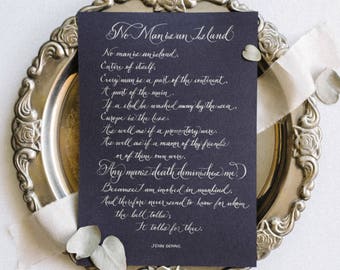 No Man is an Island
No man is an island,
Entire of itself;
Every man is a part of the continent,
A part of the main.
If a clod be washed away by the sea,
Europe is the less.
As well as if a promontory were.
As well as if a manor of thy friends
or of thine own were.
Any man's death diminishes me,
Because I am involved in mankind.
And therefore never send to know for whom
the bell tolls;
It tolls for thee.
JOHN DONNE